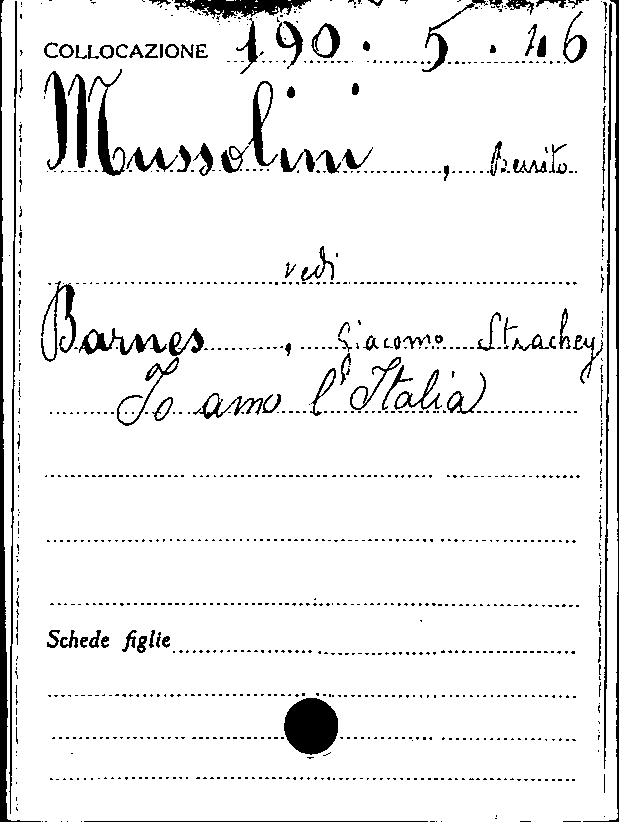 COLLOCAZIONE 190. 5. 46
Mussolini, Benito
vedi
Barnes, Giacomo Strachey
Io amo l'Italia
Schede figlie